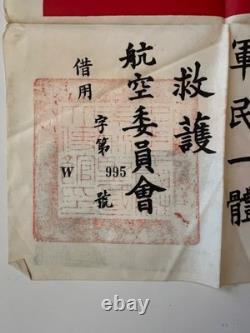 軍民一體
救護
航空委員會
借用 字第 號
W 995